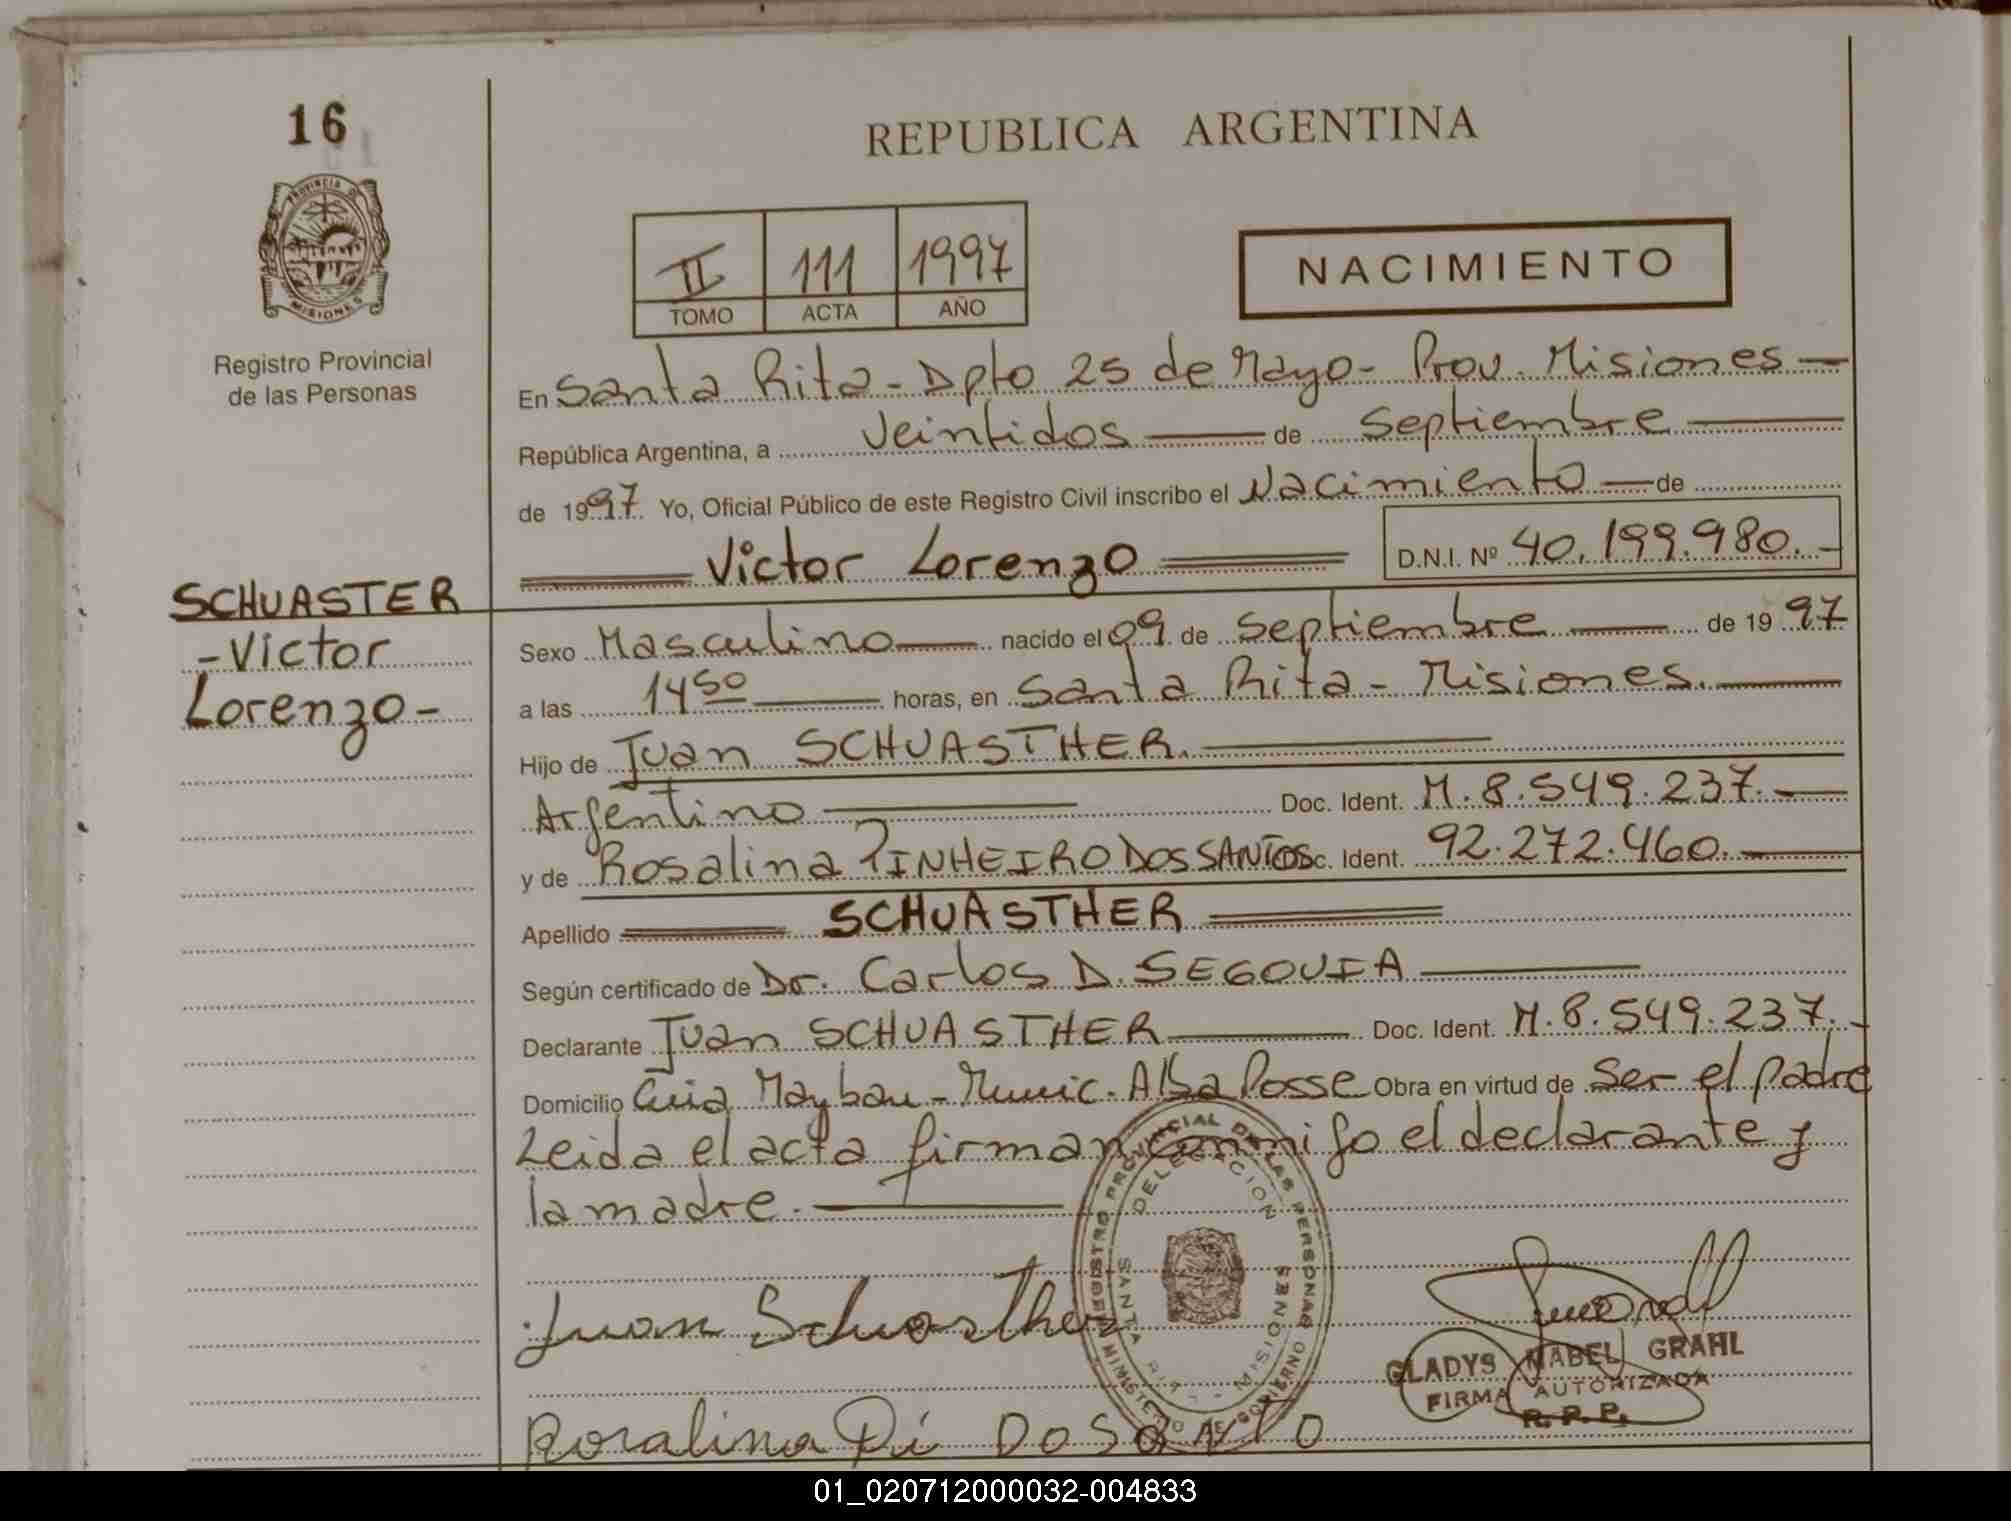 16
REPUBLICA ARGENTINA
PROVINCIA DE
MISIONES
Registro Provincial
de las Personas
II 111 1997
TOMO ACTA AÑO
NACIMIENTO
En Santa Rita - Dpto 25 de Mayo - Prov. Misiones —
República Argentina, a Veintidos — de Septiembre —
de 1997 Yo, Oficial Público de este Registro Civil inscribo el Nacimiento — de
Victor Lorenzo D.N.I. Nº 40.199.980.-
SCHUASTER
- Victor
Lorenzo -
Sexo Masculino — nacido el 09 de Septiembre — de 1997
a las 14 50 — horas, en Santa Rita - Misiones. —
Hijo de Juan SCHUASTHER. —
Argentino — Doc. Ident. M. 8.549.237. —
y de Rosalina PINHEIRO DOS SANTOS Doc. Ident. 92.272.460. —
Apellido SCHUASTHER
Según certificado de Dr. Carlos D. SEGOVIA —
Declarante Juan SCHUASTHER — Doc. Ident. M. 8.549.237. -
Domicilio Guia Maybau - Munic. Alba Posse Obra en virtud de ser el padre
Leida el acta firman conmigo el declarante y
la madre. —
REGISTRO PROVINCIAL DE LAS PERSONAS
MINISTERIO DE GOBIERNO
DELEGACION
SANTA RITA - MISIONES
Juan Schuasther
GLADYS MABEL GRAHL
FIRMA AUTORIZADA
R. P. P.
Rosalina Pi DOSANTO
01_020712000032-004833